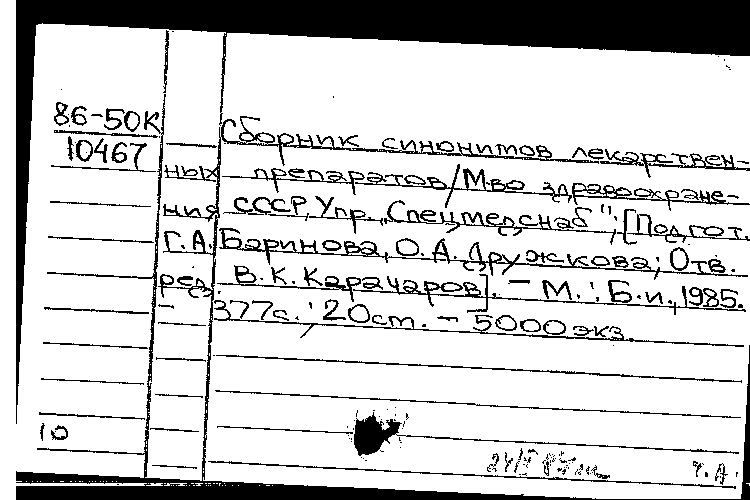 86-50К
10467
Сборник синонимов лекарствен-
ных препаратов/М-во здравоохране-
ния СССР, Упр. „Спецмедснаб"; [Подгот.
Г.А. Баринова, О.А. Дружкова; Отв.
ред. В.К. Карачаров]. – М.: Б.и., 1985.
– 377с.; 20см. – 5000 экз.
10
Ч.А.